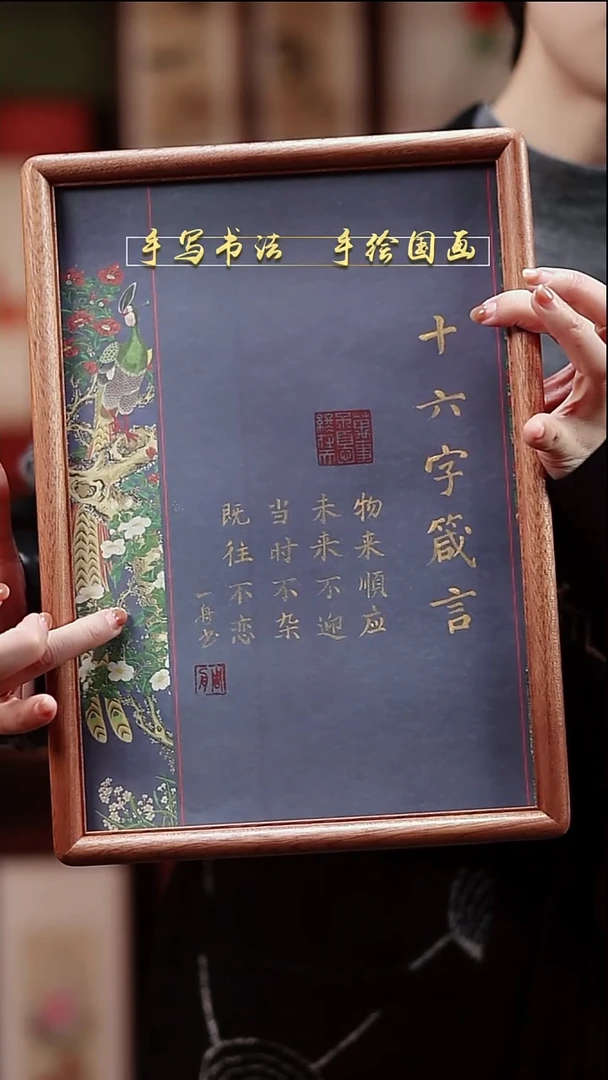 手写书法 手绘国画
十六字箴言
物来順应
未来不迎
当时不杂
既往不恋
一舟书